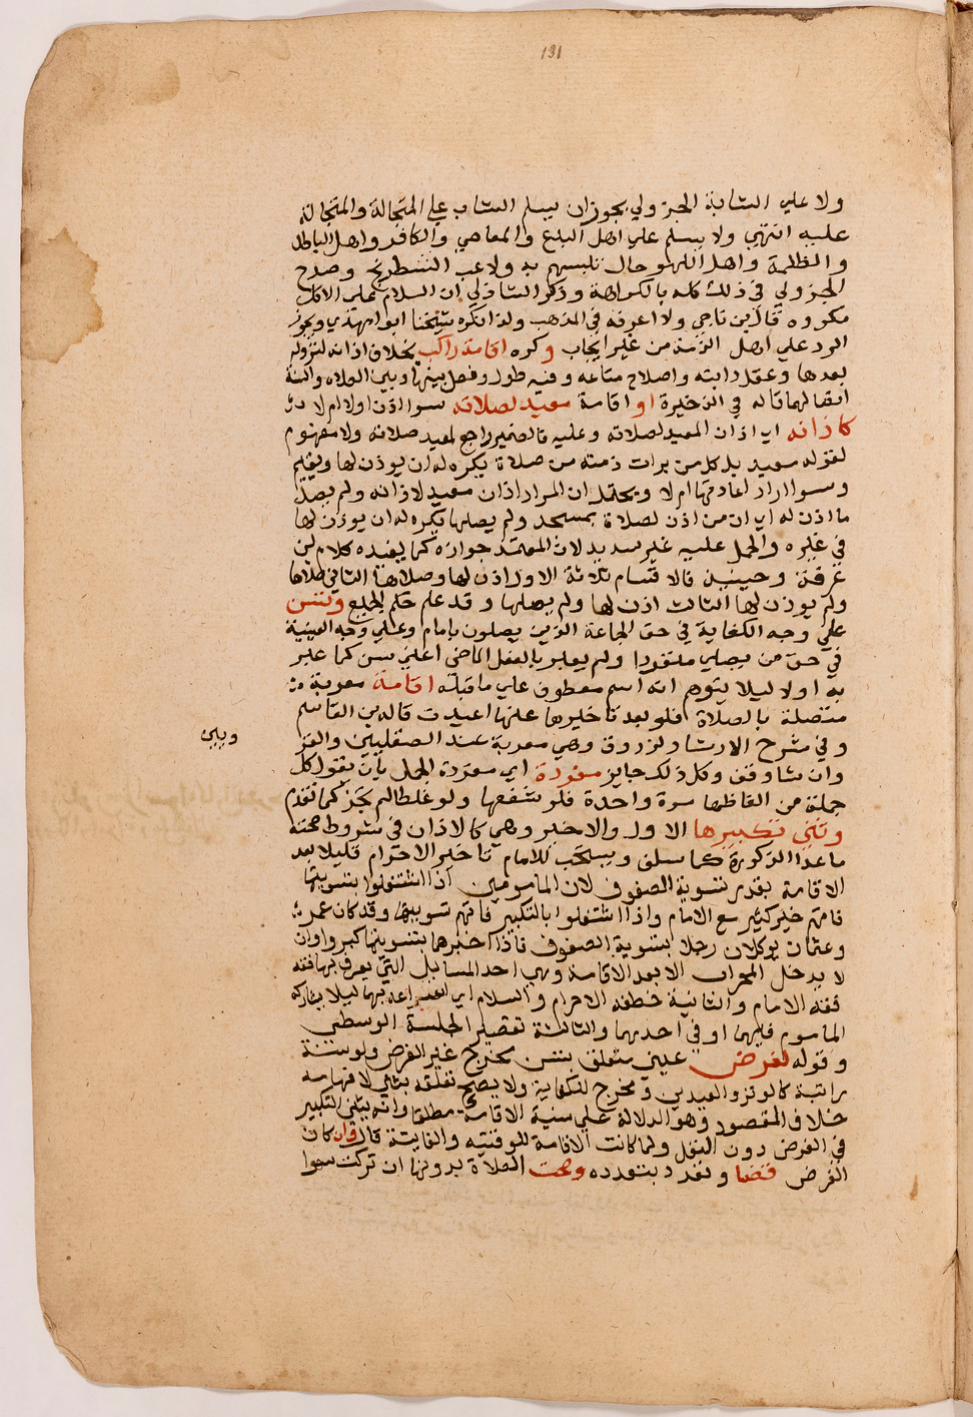 131
ولا علي الشابة الجزولي يجوز ان يسلم الشاب علي المتجالة والمتجالة
عليه انتهي ولا يسلم علي اهل البدع والمعاصي والكافر واهل الباطل
والظلمة واهل اللهو حال تلبسهم به ولاعب الشطرنج وصرح
الجزولي في ذلك كله بالكراهة وذكر الشاذلي ان السلام على الاكل
مكروه قال بن ناجي ولا اعرفه في المذهب ولذا نكره شيخنا ابوا مهدي ويجوز
الرد علي اهل الذمة من غير ايجاب وكره اقامة راكب بخلاف اذانه لنزوله
بعدها وعقل دابته واصلاح متاعه وفيه طول وفصل بينها وبين الصلاه والسنة
اتصالها قاله في الذخيرة او اقامة معيد لصلاته سوا اذن اولا ام لا
كاذانه اي اذان المعيد لصلاته وعليه فالضمير راجع لمعيد صلاته ولا مفهوم
لقوله معيد بل كل من برات ذمته من صلاة يكره له ان يوذن لها ويقيم
وسوا اراد اعادتها ام لا ويحتمل ان المراد اذان معيد لاذانه ولم يصل
ما اذن له اي ان من اذن لصلاة بمسجد ولم يصلها يكره له ان يوذن لها
في غيره والحمل عليه غير سديد لان المعتمد جوازه كما يفيده كلام بن
عرفة وحينيذ فالاقسام ثلاثة الاول اذن لها وصلاها الثاني صلاها
ولم يوذن لها الثالث اذن لها ولم يصلها وقد علم حكم الجميع وتسن
علي وجه الكفاية في حق الجماعة الذين يصلون بامام وعلي وجه العينية
في حق من يصلي منفردا ولم يعبر بالفعل الماضي اعني سن كما عبر
به اولا ليلا يتوهم انه اسم معطوف علي ما قبله اقامة معربة
متصلة بالصلاة فلو بعد تاخيرها عنها اعيدت قاله بن القاسم
وفي شرح الارشاد لزروق وهي معربة عند الصقليين والقر
ويين
وان شا وقف وكل ذلك جايز مفردة اي مفردة الجمل بان يقول كل
جملة من الفاظها مرة واحدة فلو شفعها ولو غلطا لم يجز كما تقدم
وثني تكبيرها الاول والاخير وهي كالاذان في شروط صحته
ما عدا الذكورة كما سلف ويستحب للامام تاخير الاحرام قليلا بعد
الاقامة بقدر تسوية الصفوف لان المامومين اذا اشتغلوا بتسويتها
فاتهم خير كثير مع الامام واذا اشتغلوا بالتكبير فاتهم تسويتها وقد كان عمر
وعثمان يوكلان رجلا بتسوية الصفوف فاذا اخبرهما بتسويتها كبروا وان
لا يدخل المحراب الا بعد الاقامة وهي احد المسايل التي يعرف بها فقه
فقه الامام والثانية خطفه الاحرام والسلام اي ليلا يشاركه
الماموم فيهما او في احديهما والثالثة تقصير الجلسة الوسطي
وقوله لفرض عيني متعلق بتسن مخرج غير الفرض ولو سنة
راتبة كالوتر والعيدين ومخرج للكفاية ولا يصح تعلقه بثني لافهامه
خلاف المقصود وهو الدلالة علي سنية الاقامة مطلقا وانه يثني التكبير
في الفرض دون النفل ولما كانت الاقامة للوقتيه والفايتة قال وان كان
الفرض قضا وتعدد بتعدده وصحت الصلاة بدونها ان تركت سهوا